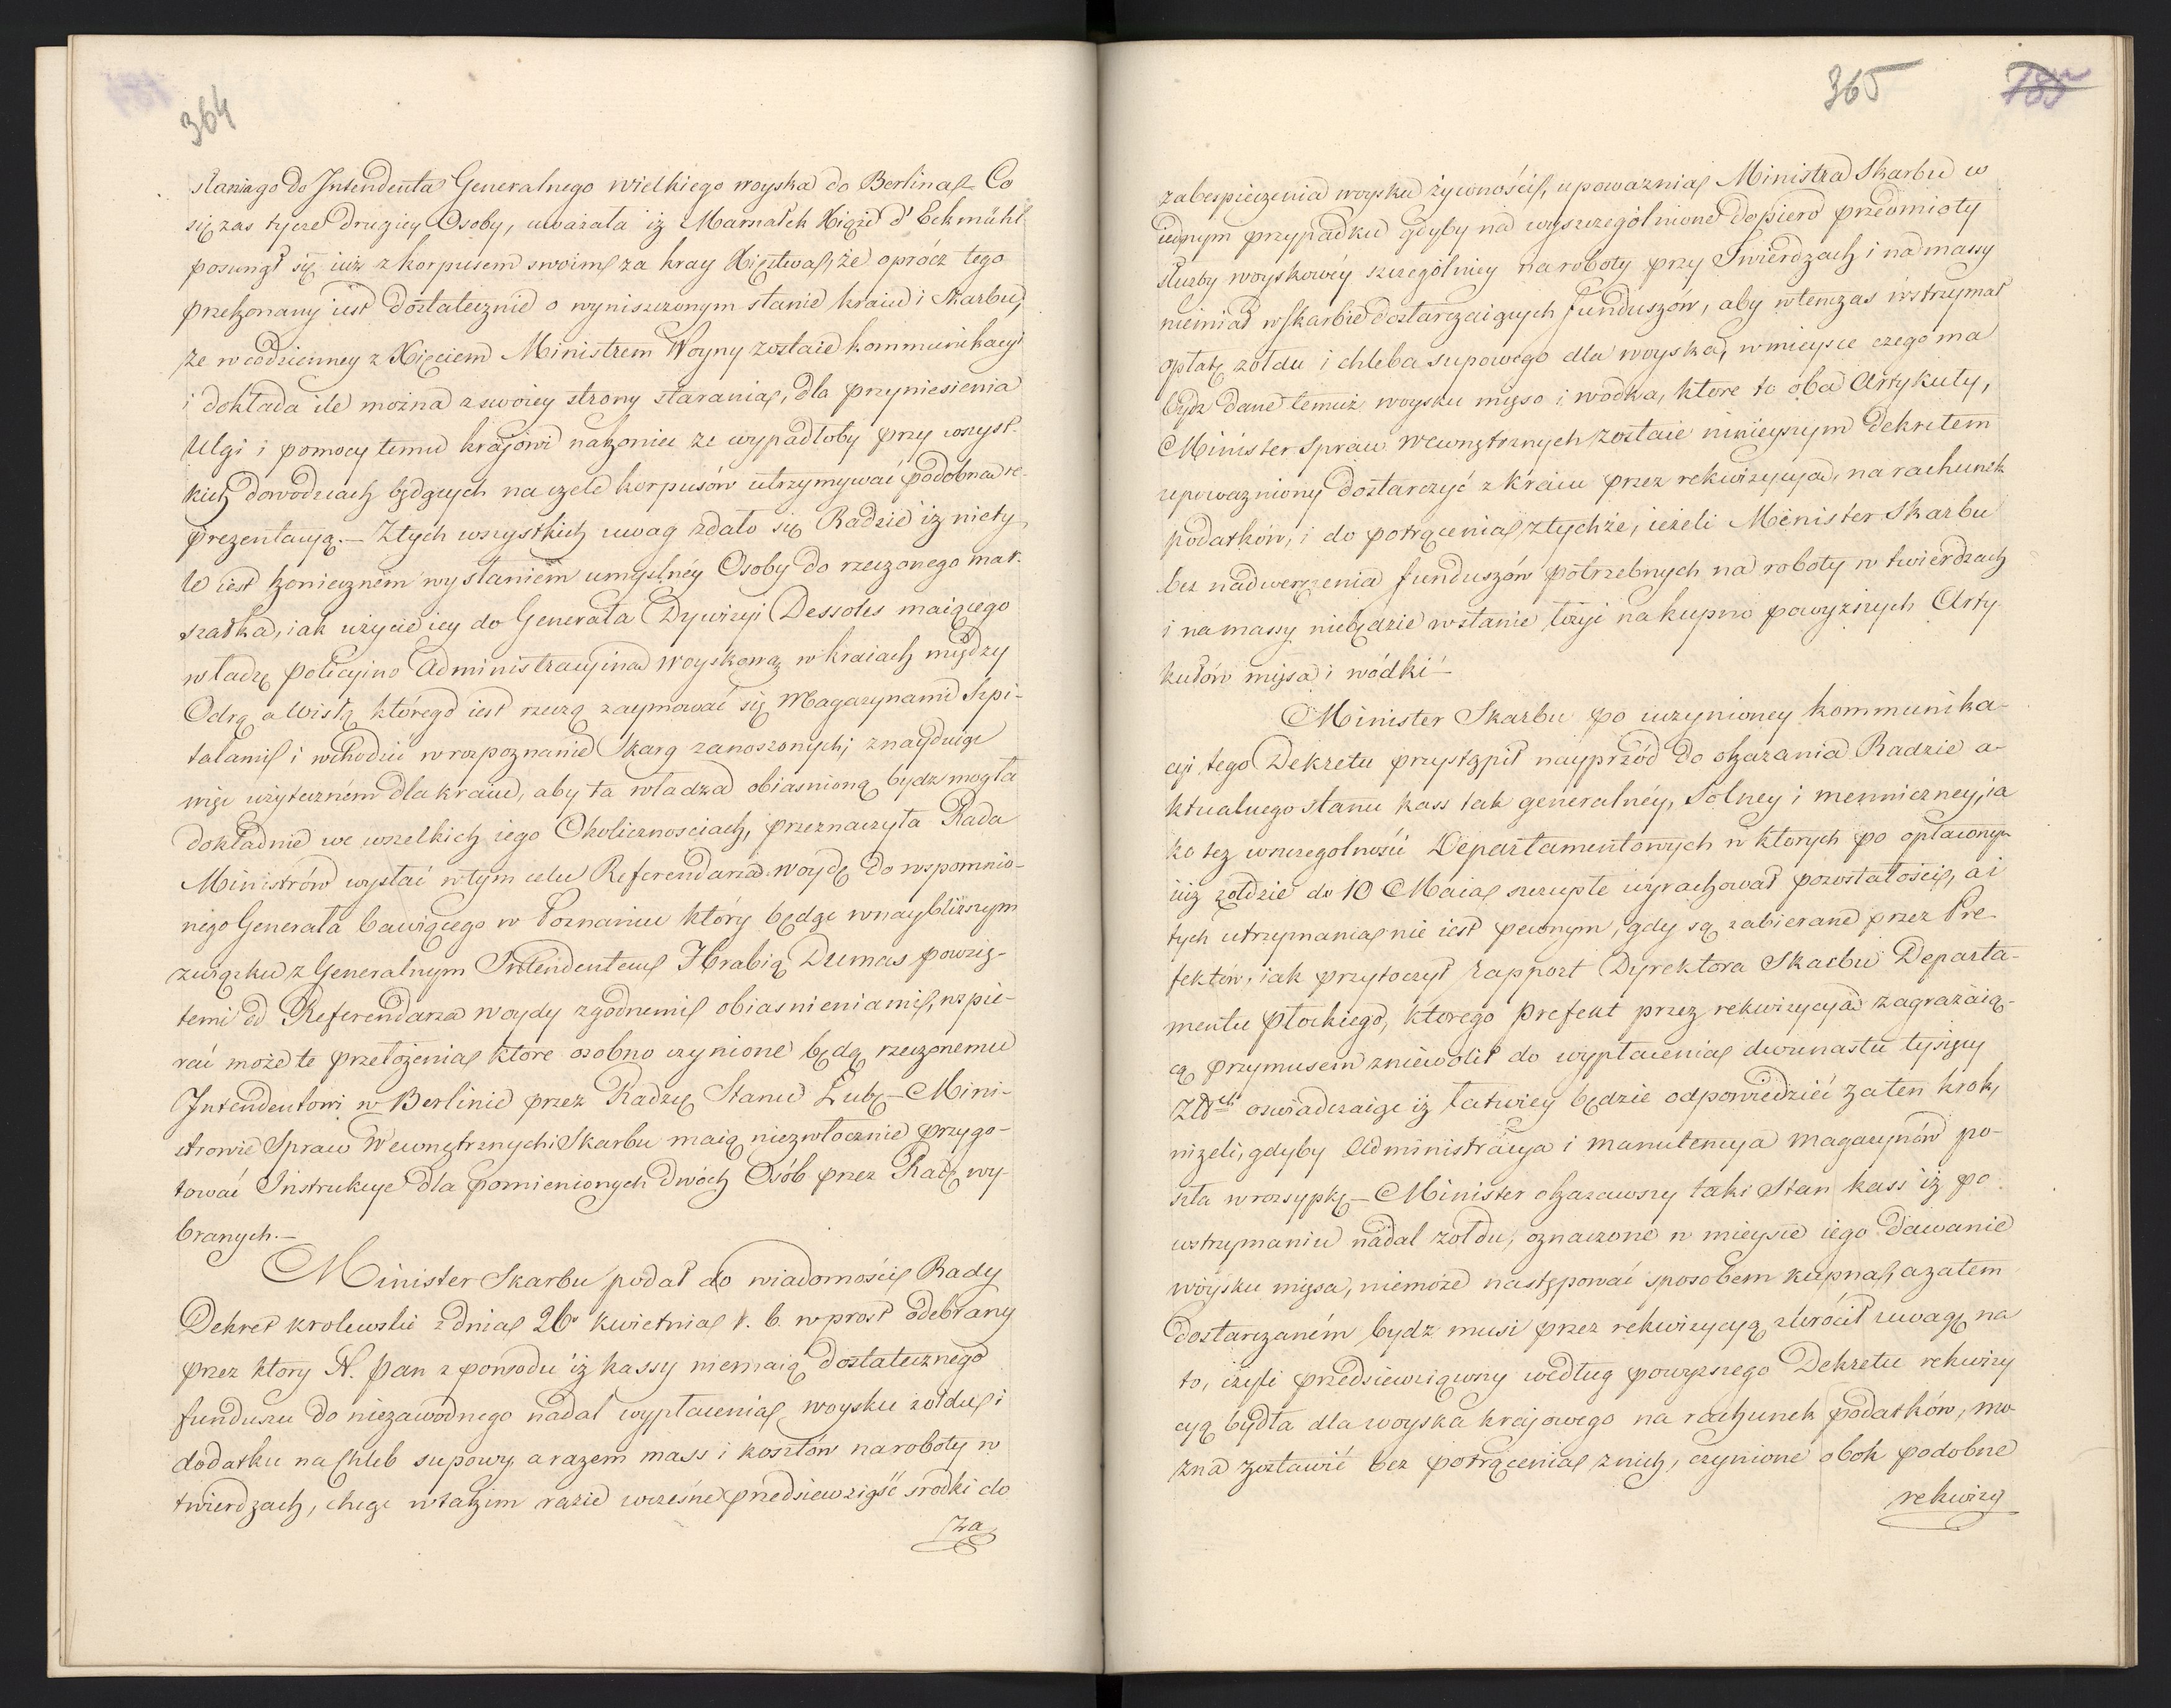 364
słaniago do Intendenta Generalnego wielkiego woyska do Berlina. Co
się zas tycze drugiey Osoby, uważała iz Marszałek Xiąże d'Eckmühl
posunął się iuż z korpusem swoim za kray Xięstwa, że oprócz tego
przekonany iest dostatecznie o wyniszczonym stanie kraiu i Skarbu,
że w codzienney z Xięciem Ministrem Woyny zostaie kommunikacyi
i dokłada ile można z swoiey strony starania, dla przyniesienia
Ulgi i pomocy temu krajowi nakoniec ze wypadłoby przy wszyst-
kich dowodzcach będących na czele korpusów utrzymywać podobna re-
prezentacyą.— Z tych wszystkich uwag zdało się Radzie iz nie ty-
le iest konieczném wysłaniem umyślnéy Osoby do rzeczonego mar-
szałka, iak użycie iey do Generała Dywizyi Dessoles maiącego
władzę policyino Administracyina woyskową w kraiach między
Odrą a Wisłą którego iest rzeczą zaymować się Magazynami Szpi-
talami i wchodzić w rozpoznanie Skarg zanoszonych; znayduiąc
więc użyteczném dla kraiu, aby ta władza obiasnioną bydz mogła
dokładnie we wszelkich iego Okolicznosciach, przeznaczyła Rada
Ministrów wysłać w tym celu Referendarza Woydę do wspomnio-
nego Generała bawiącego w Poznaniu który będąc w naybliższym
związku z Generalnym Intendentem Hrabią Dumas powzię-
temi od Referendarza Woydy zgodnemi obiasnieniami, wspie-
rać może te przełożenia które osobno czynione będą rzeczonemu
Intendentowi w Berlinie przez Radzcę Stanu Lubę — Mini-
strowie Spraw Wewnętrznych i Skarbu maią niezwłocznie przygo-
tować Instrukcye dla pomienionych dwóch Osób przez Radę wy-
branych.—
Minister Skarbu podał do wiadomości Rady
Dekret krolewski z dnia 26º kwietnia r. b. wprost odebrany
przez ktory N. Pan z powodu iż kassy niemaią dostatecznego
funduszu do niezawodnego nadal wypłacenia woysku żołdu i
dodatku na Chleb supowy a razem mass i kosztów na roboty w
twierdzach, chcąc w takim razie wcześne przedsiewziąść srodki do
za
365
785
zabespieczenia woysku żywności, upoważnia Ministra Skarbu w
iednym przypadku gdyby na wyszczególnione dopiero przedmioty
służby woyskowéy szczególniey na roboty przy Twierdzach i na massy
niemiał w Skarbie dostarczaiących funduszów, aby wtenczas wstrzymał
opłatę żołdu i chleba supowego dla woyska, w mieysce czego ma
bydz dane temuż woysku mięso i wodka, ktore to oba Artykuły,
Minister Spraw Wewnętrznych zostaie ninieyszym Dekretem
upoważniony dostarczyć z kraiu przez rekwizycyą, na rachunek
podatków, i do potrącenia z tychże, ieżeli Minister Skarbu
bez nadwerężenia funduszów potrzebnych na roboty w twierdzach
i na massy niebędzie w stanie łożyć na kupno powyższych Arty-
kułów mięsa i wódki —
Minister Skarbu po uczynioney kommunika-
cyi tego Dekretu przystąpił nayprzód do okazania Radzie a-
ktualnego stanu kass tak generalnéy, Solney i menniczney, ia-
ko tez w szczególności Departamentowych w ktorych po opłaconym
iuż żołdzie do 10 Maia szczupłe wyrachował pozostałości, a i
tych utrzymania nie iest pewnym, gdy są zabierane przez Pre-
fektów, iak przytoczył rapport Dyrektora Skarbu Departa-
mentu Płockiego, ktorego Prefekt przez rekwizycyą zagrażaią-
cą przymusem zniewolił do wypłacenia dwunastu tysięcy
oswiadczaiąc iz łatwiey będzie odpowiedzieć za ten krok,
niżeli, gdyby Administracya i manutencya magazynów po-
szła w rozsypkę — Minister okazawszy taki Stan kass iż po
wstrzymaniu nadal żołdu, oznaczone w mieysce iego dawanie
woysku mięsa, niemoże następować sposobem kupna, a zatem
dostarczaném bydz musi przez rekwizycyą zwrócił uwagę na
to, czyli przedsiewziąwszy według powyższego Dekretu rekwizy
cyą bydła dla woyska krajowego na rachunek podatków, mo-
żna zostawić bez potrącenia z nich, czynione obok podobne
rekwizy